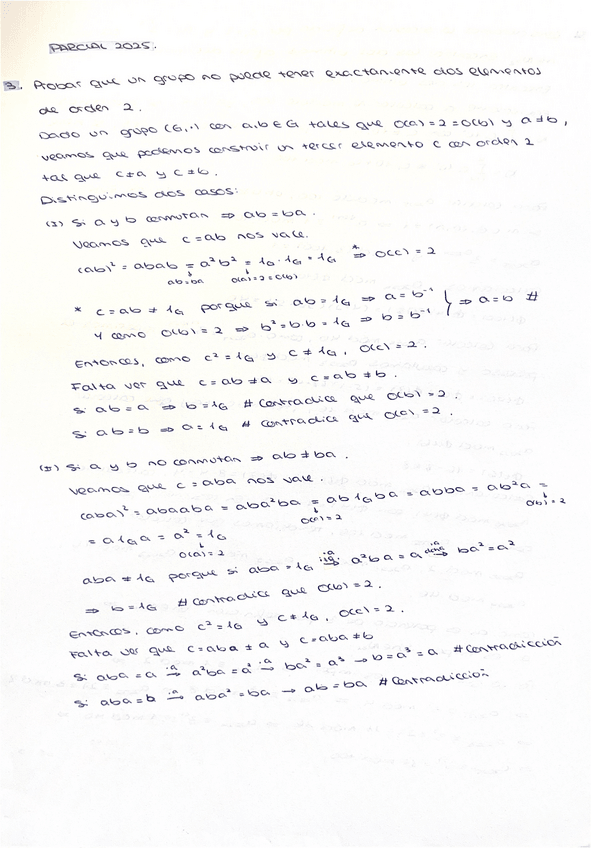 PARCIAL 2025.
3. Probar que un grupo no puede tener exactamente dos elementos
de orden 2.
Dado un grupo (G,·) con a,b∈G tales que O(a)=2=O(b) y a≠b,
veamos que podemos construir un tercer elemento c con orden 2
tal que c≠a y c≠b.
Distinguimos dos casos:
(I) Si a y b conmutan ⇒ ab=ba.
Veamos que c=ab nos vale.
(ab)² = abab = a²b² = 1G·1G = 1G ⇒* O(c)=2
ab=ba O(a)=2=O(b)
* c=ab ≠ 1G porque si ab=1G ⇒ a=b⁻¹ } ⇒ a=b #
Y como O(b)=2 ⇒ b²=b·b=1G ⇒ b=b⁻¹
Entonces, como c²=1G y c≠1G, O(c)=2.
Falta ver que c=ab≠a y c=ab≠b.
Si ab=a ⇒ b=1G # Contradice que O(b)=2.
Si ab=b ⇒ a=1G # Contradice que O(a)=2.
(II) Si a y b no conmutan ⇒ ab≠ba.
Veamos que c=aba nos vale.
(aba)² = abaaba = aba²ba = ab1Gba = abba = ab²a =
O(a)=2 O(b)=2
= a1Ga = a² = 1G
O(a)=2
aba ≠ 1G porque si aba=1G ⇒ a²ba=a ⇒ ba²=a²
⇒ b=1G # Contradice que O(b)=2.
Entonces, como c²=1G y c≠1G, O(c)=2.
Falta ver que c=aba≠a y c=aba≠b
Si aba=a →·a a²ba=a² →·a ba²=a³ → b=a³=a #Contradicción
Si aba=b →·a aba²=ba → ab=ba #Contradicción